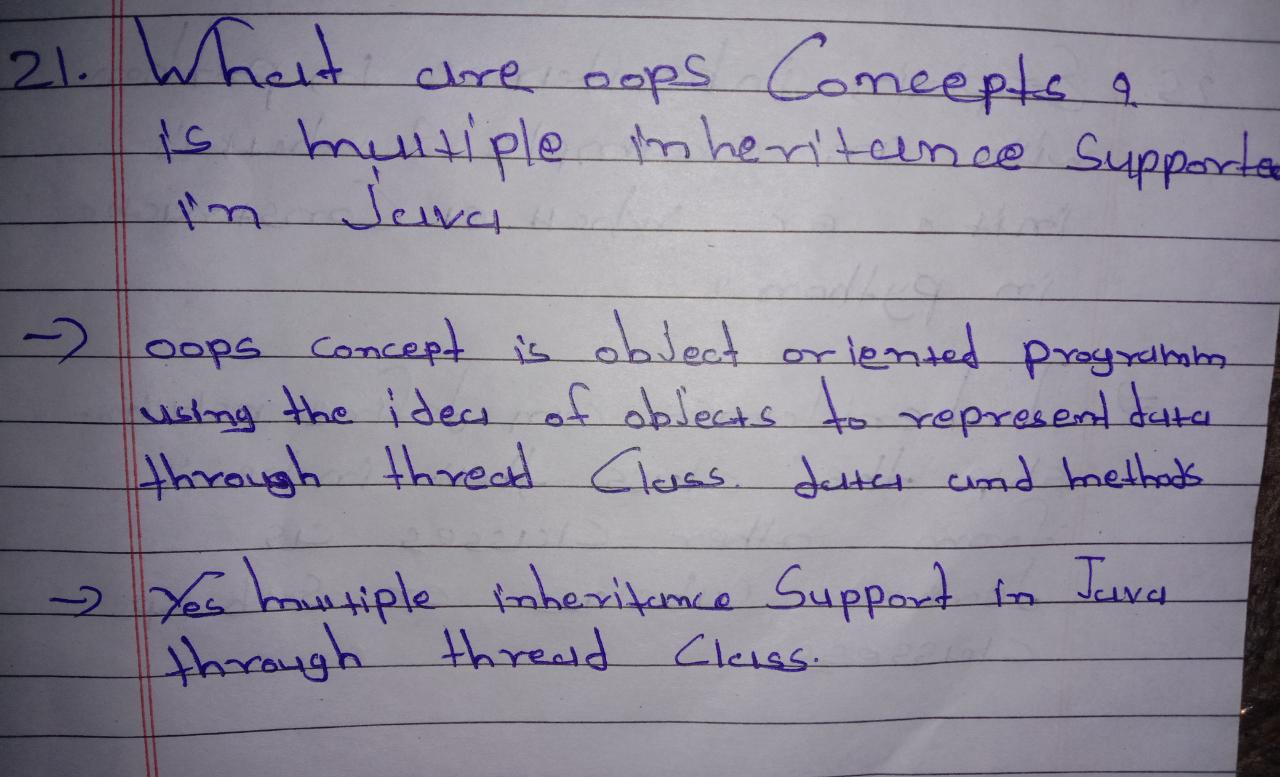 21. What are oops Concepts ?
is multiple inheritance Supporte
in Java
→ oops concept is object oriented programm
using the idea of objects to represent data
through thread Class. data and methods
→ Yes multiple inheritance Support in Java
through thread Class.